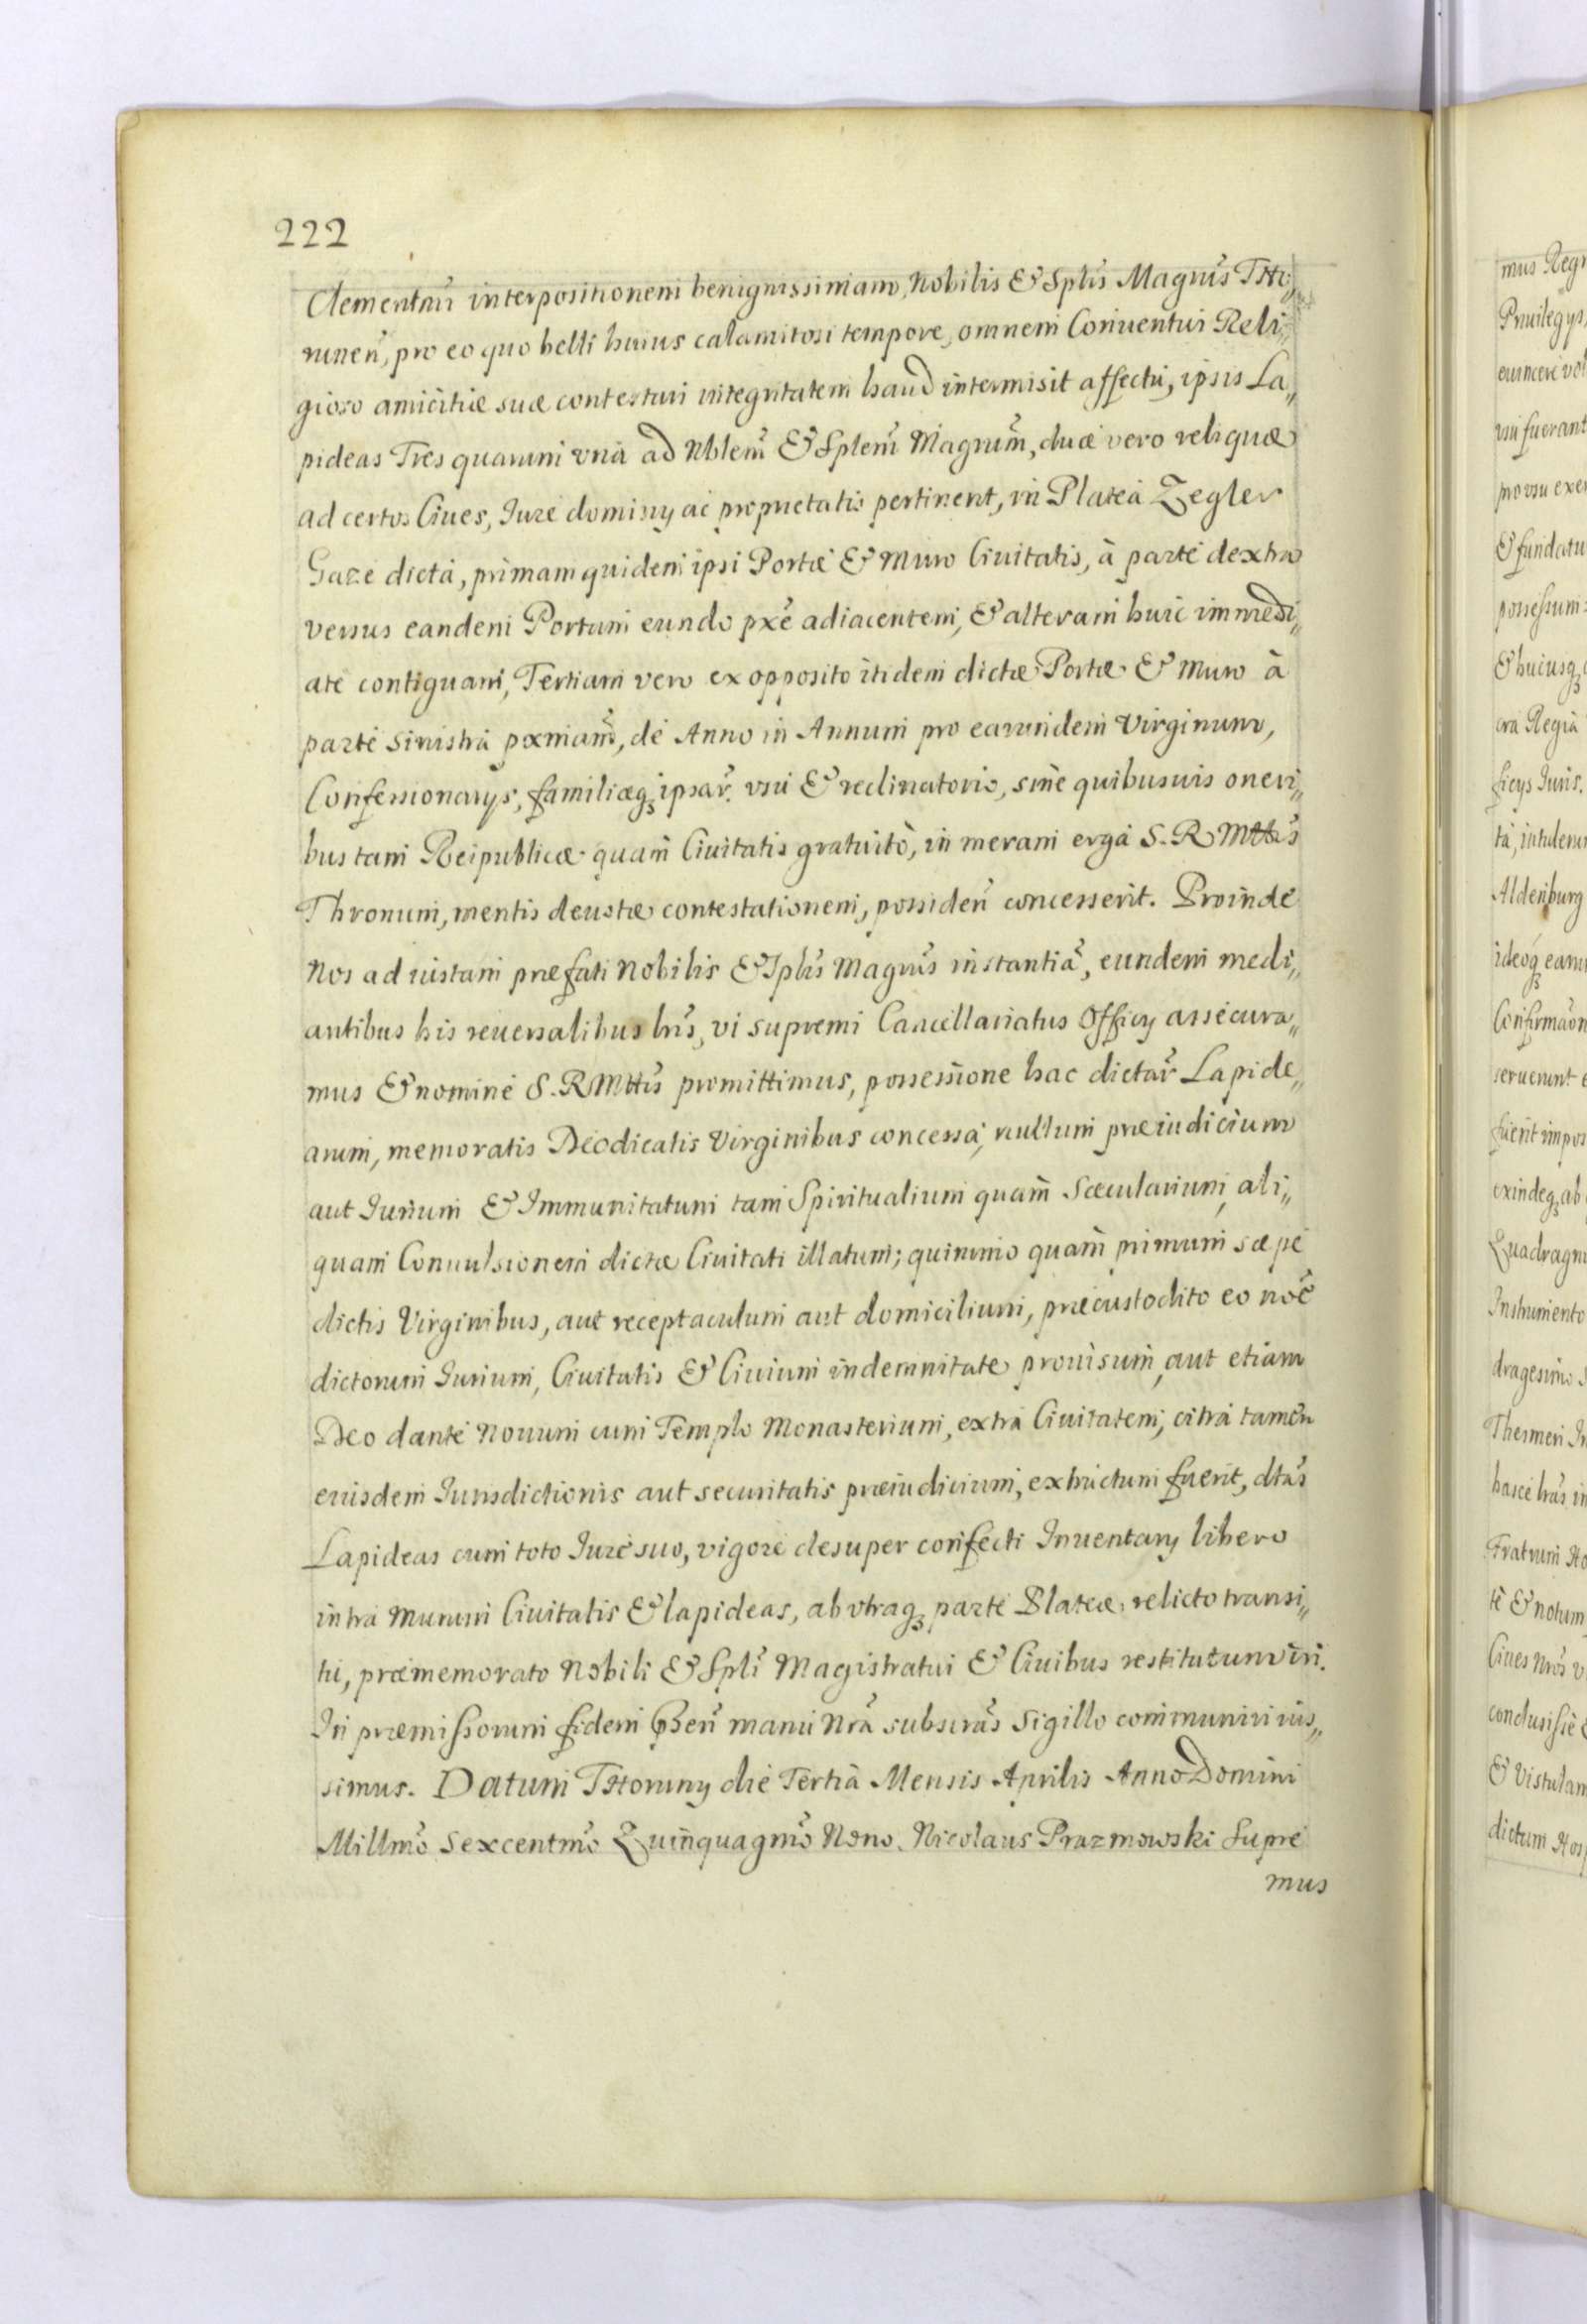 222
Clementmũ interpositionem benignissimam, Nobilis & Splis̃ Magnus̃ THo„
runen̄, pro eo quo belli huius calamitosi tempore, omnem Conuentui Reli„
gioso amicitiæ suæ contestari integritatem haud intermisit affectũ, ipsis La„
pideas Tres quarum vna ad Nblem̃ & Splem̃ Magrum̃, duæ vero reliquæ
ad certos Ciues, Iure dominy ac proprietatis pertinent, in Platea Zegler
Gaze dicta, primam quidem ipsi Portæ & Muro Ciuitatis, à parte dextra
versus eandem Portam eundo pxẽ adiacentem, & alteram huic immedi„
ate contiguam, Tertiam vero ex opposito itidem dictæ Portæ & Muro à
parte sinistra pxmam̃, de Anno in Annum pro earundem Virginum,
Confessionarys, familiæq₃ ipsar̃. vsu & reclinatorio, sine quibusuis oneri„
bus tam Reipublicæ quam Ciuitatis gratuitò, in meram erga S. R Mttis̃
Thronum, mentis deuotæ contestationem, possiden̄ concesserit. Proinde
Nos ad iustam præfati Nobilis & Splis̃ Magrus̃ instantiã, eundem medi„
antibus his reuersalibus lris̃, vi supremi Cancellariatus Officy assecura„
mus & nomine S. R Mttis̃ promittimus, possessione hac dictar̃ Lapide„
arum, memoratis Deodicatis Virginibus concessa, nullum præiudicium
aut Iurium & Immunitatum tam Spiritualium quam Sæcularium, ali„
quam Conuulsionem dictæ Ciuitati illatum; quinimo quam primum sæpe
dictis Virginibus, aut receptaculum aut domicilium, præcustodito eo noẽ
dictorum Iurium, Ciuitatis & Ciuium indemnitate prouisum, aut etiam
Deo dante Nouum cum Templo Monasterium, extra Ciuitatem, citra tamen
eiusdem Iurisdictionis aut securitatis præiudicium, extructum fuerit, dtas̃
Lapideas cum toto Iure suo, vigore desuper confecti Inuentary libero
intra Murum Ciuitatis & lapideas, ab vtraq₃ parte Plateæ, relicto transi„
tu, præmemorato Nobili & Spli̇̃ Magistratui & Ciuibus restitutum iri.
In præmissorum fidem Pñ manu Nrã subscras̃ Sigillo communiri ius„
simus. Datum THoruny die Tertia Mensis Aprilis Anno Domini
Millmõ Sexcentmõ Quinquagmõ Nono. Nicolaus Prazmowski Supre
mus
mus Regn
Priuilegys,
euincere vol
vsu fuerant
pro vsu exer
& fundatu
possessum:
& huiusq₃
cra Regia
ficys Iuris.
ta, intulerun
Aldenburg
ideoq₃ earu
Confirmaõn
seruerunt e
fuerit impos
exindeq₃ ab
Quadragm
Instrumento
dragesimo S
Thesmeri In
hasce lras̃ in
Fratrum Ho
te & notum
Ciues Nros̃ v
conclusisse &
& Vistulam
dictum Hosp